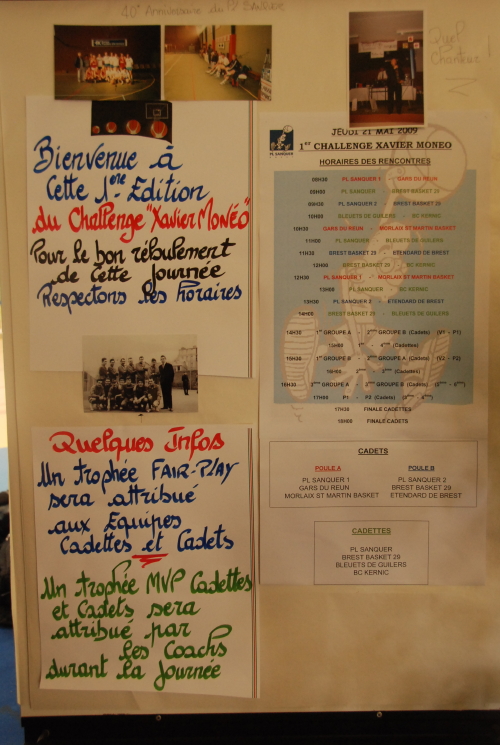 40e Anniversaire du PL SANQUER
Quel
Chanteur !
Bienvenue à
Cette 1ère Edition
du Challenge "Xavier MONÉO"
Pour le bon déroulement
de cette journée
Respectons les horaires
Quelques Infos
Un trophée FAIR-PLAY
sera attribué
aux Equipes
Cadettes et Cadets
Un trophée MVP Cadettes
et Cadets sera
attribué par
les Coachs
durant la Journée
PL SANQUER
JEUDI 21 MAI 2009
1er CHALLENGE XAVIER MONEO
HORAIRES DES RENCONTRES
09H30 PL SANQUER 1 - GARS DU REUN
PL SANQUER - BREST BASKET 29
PL SANQUER 2 - BREST BASKET 29
10H00 BLEUETS DE GUILERS - BC KERNIC
10H30 GARS DU REUN - MORLAIX ST MARTIN BASKET
11H00 PL SANQUER - BLEUETS DE GUILERS
11H30 BREST BASKET 29 - ETENDARD DE BREST
12H00 BREST BASKET 29 - BC KERNIC
12H30 PL SANQUER 1 - MORLAIX ST MARTIN BASKET
13H00 PL SANQUER - BC KERNIC
13H30 PL SANQUER 2 - ETENDARD DE BREST
14H00 BREST BASKET 29 - BLEUETS DE GUILERS
14H30 1er GROUPE A - 2ème GROUPE B (Cadets) (V1 - P1)
15H00 1er - 4ème (Cadettes)
15H30 1er GROUPE B - 2ème GROUPE A (Cadets) (V2 - P2)
16H00 2ème - 3ème (Cadettes)
16H30 3ème GROUPE A - 3ème GROUPE B (Cadets) (5ème - 6ème)
17H00 P1 - P2 (Cadets) (3ème - 4ème)
17H30 FINALE CADETTES
18H00 FINALE CADETS
CADETS
POULE A POULE B
PL SANQUER 1 PL SANQUER 2
GARS DU REUN BREST BASKET 29
MORLAIX ST MARTIN BASKET ETENDARD DE BREST
CADETTES
PL SANQUER
BREST BASKET 29
BLEUETS DE GUILERS
BC KERNIC